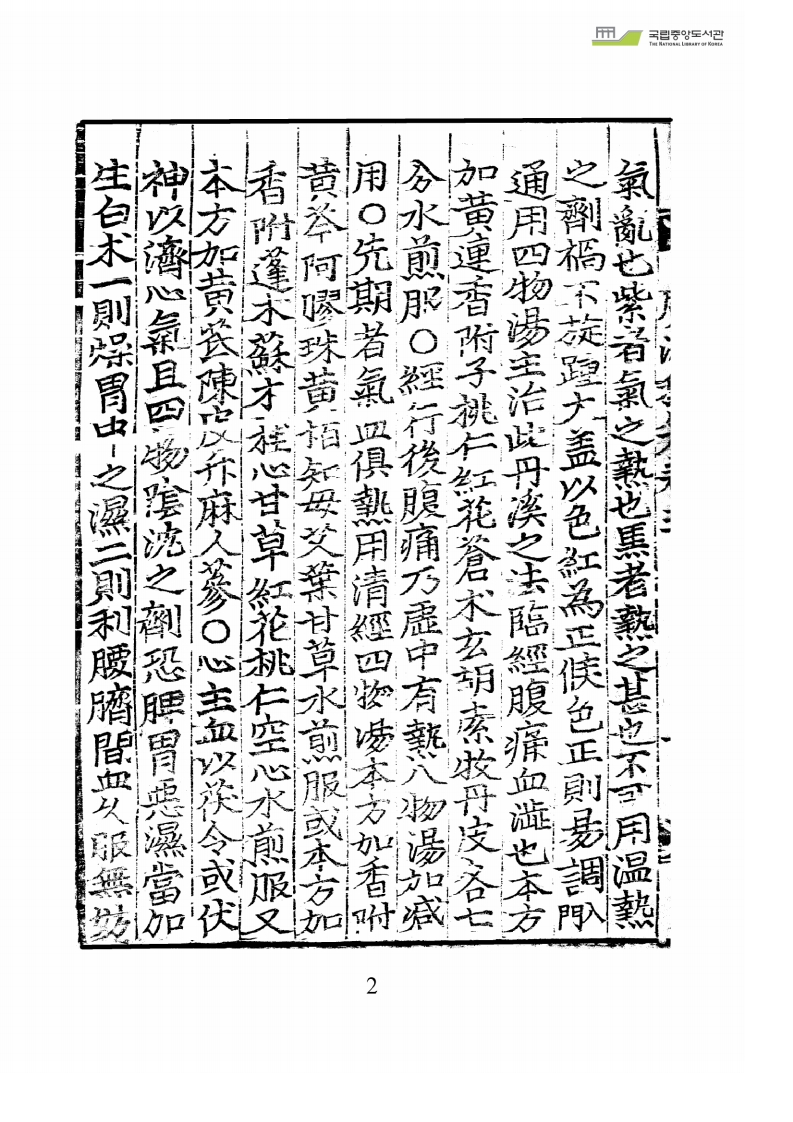 국립중앙도서관
THE NATIONAL LIBRARY OF KOREA
氣亂也紫者氣之熱也黑者熱之甚也不可用温熱
之劑禍不旋踵大盖以色紅為正候色正則易調入門
通用四物湯主治此丹溪之法臨經腹痛血澁也本方
加黃連香附子桃仁紅花蒼朮玄胡索牧丹皮各七
分水煎服〇經行後腹痛乃虛中有熱八物湯加减
用〇先期者氣血俱熱用清經四物湯本方加香附
黃芩阿膠珠黃栢知母艾葉甘草水煎服或本方加
香附蓬朮蘇木桂心甘草紅花桃仁空心水煎服又
本方加黃芪陳皮升麻人蔘〇心主血以茯令或伏
神以濟心氣且四物陰沈之劑恐脾胃惡濕當加
生白朮一則燥胃中之濕二則利腰臍間血久服無妨
2